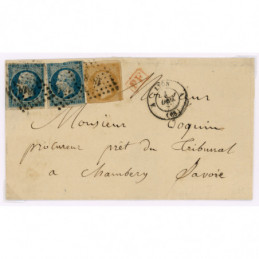 Monsieur
Monsieur Doquin
procureur près du Tribunal
a Chambery
Savoie